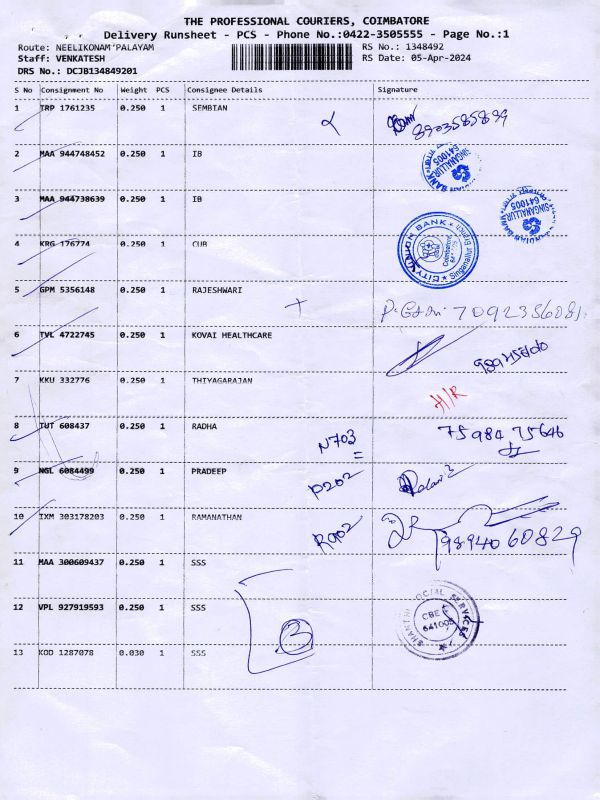 THE PROFESSIONAL COURIERS, COIMBATORE
Delivery Runsheet - PCS - Phone No.:0422-3505555 - Page No.:1
Route: NEELIKONAM'PALAYAM
RS No.: 1348492
Staff: VENKATESH
RS Date: 05-Apr-2024
DRS No.: DCJB134849201
S No Consignment No Weight PCS Consignee Details Signature
1 TRP 1761235 0.250 1 SEMBIAN
2 MAA 944748452 0.250 1 IB
SINGANALLUR 641005
3 MAA 944738639 0.250 1 IB
SINGANALLUR 641005
4 KRG 176774 0.250 1 CUB
CITY UNION BANK Singanallur Branch
5 GPM 5356148 0.250 1 RAJESHWARI
6 TVL 4722745 0.250 1 KOVAI HEALTHCARE
7 KKU 332776 0.250 1 THIYAGARAJAN H/R
8 TUT 608437 0.250 1 RADHA N703 75984 75646
9 NGL 6084499 0.250 1 PRADEEP P202
10 IXM 303178203 0.250 1 RAMANATHAN R902 9894060829
11 MAA 300609437 0.250 1 SSS
12 VPL 927919593 0.250 1 SSS 3
SHANTHI SOCIAL SERVICES CBE 641005
13 KOD 1287078 0.030 1 SSS